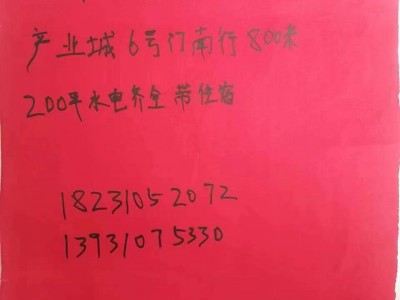 产业城6号门南行800米
200平水电齐全 带住宿
18231052072
13931075330